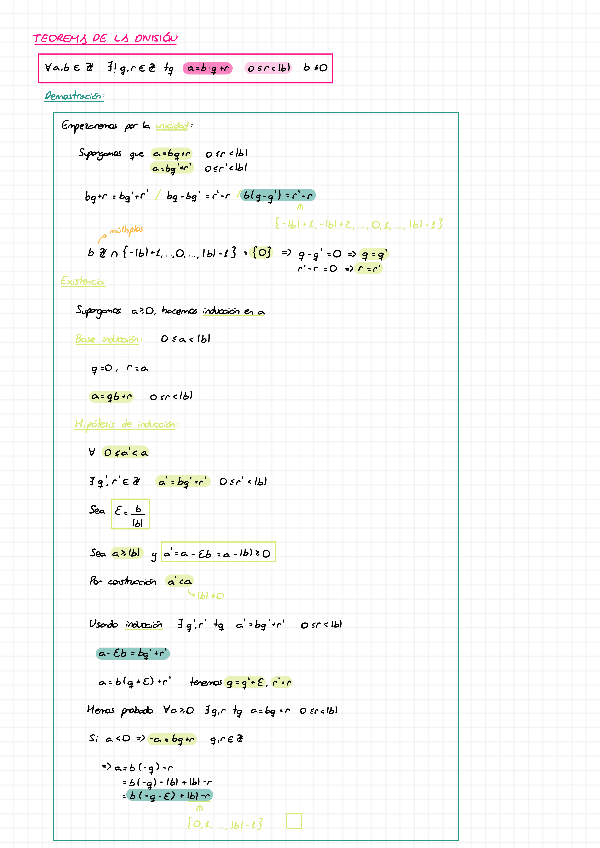 TEOREMA DE LA DIVISIÓN
∀a,b ∈ ℤ ∃! q,r ∈ ℤ tq a=b·q+r 0≤r<|b| b≠0
Demostración:
Empezaremos por la unicidad:
Supongamos que a=bq+r 0≤r<|b|
a=bq'+r' 0≤r'<|b|
bq+r=bq'+r' / bq-bq'=r'-r / b(q-q')=r'-r
∈
{-|b|+1,-|b|+2,...,0,1,...,|b|-1}
múltiplos
bℤ ∩ {-|b|+1,...,0,...,|b|-1} = {0} ⇒ q-q'=0 ⇒ q=q'
r'-r=0 ⇒ r=r'
Existencia:
Supongamos a≥0, hacemos inducción en a
Base inducción: 0≤a<|b|
q=0, r=a
a=qb+r 0≤r<|b|
Hipótesis de inducción:
∀ 0≤a'<a
∃q',r'∈ℤ a'=bq'+r' 0≤r'<|b|
Sea Ɛ=b/|b|
Sea a≥|b| y a'=a-Ɛb=a-|b|≥0
Por construcción a'<a
|b|≠0
Usando inducción ∃q',r' tq a'=bq'+r' 0≤r<|b|
a-Ɛb=bq'+r'
a=b(q+Ɛ)+r' tenemos q=q'+Ɛ, r'=r
Hemos probado ∀a≥0 ∃q,r tq a=bq+r 0≤r<|b|
Si a<0 ⇒ -a=bq+r q,r∈ℤ
⇒ a=b(-q)-r
=b(-q)-|b|+|b|-r
=b(-q-Ɛ)+|b|-r
∈
{0,1,...,|b|-1} □